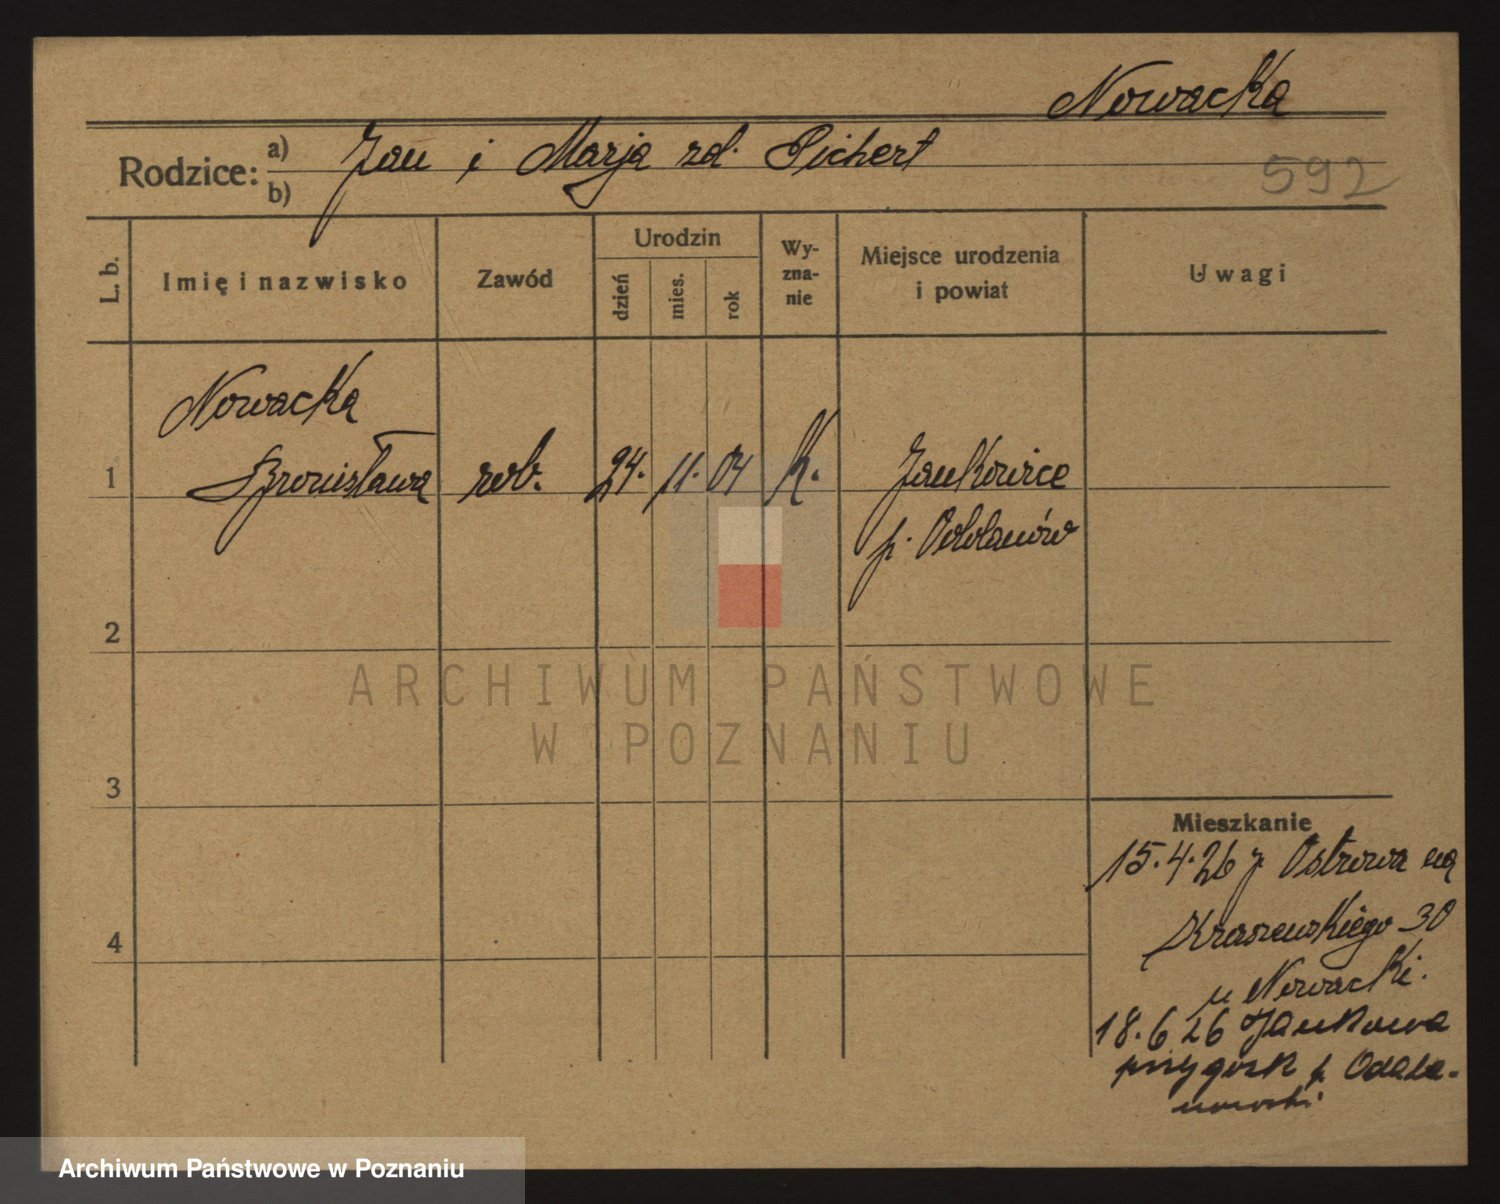 Nowacka
Rodzice: a) Jan i Marja zd. Pichert
b)
592
L. b.
Imię i nazwisko
Zawód
Urodzin
dzień
mies.
rok
Wy-
zna-
nie
Miejsce urodzenia
i powiat
Uwagi
Nowacka
1 Bronisława rob. 24. 11. 04 K. Jankowice
p. Odolanów
2
3
4
ARCHIWUM PAŃSTWOWE
W POZNANIU
Mieszkanie
15.4.26 z Ostrowa na
Kraszewskiego 30
u Nowacki.
18.6 26 Jankowa
przygosk p Odola-
nowski
Archiwum Państwowe w Poznaniu